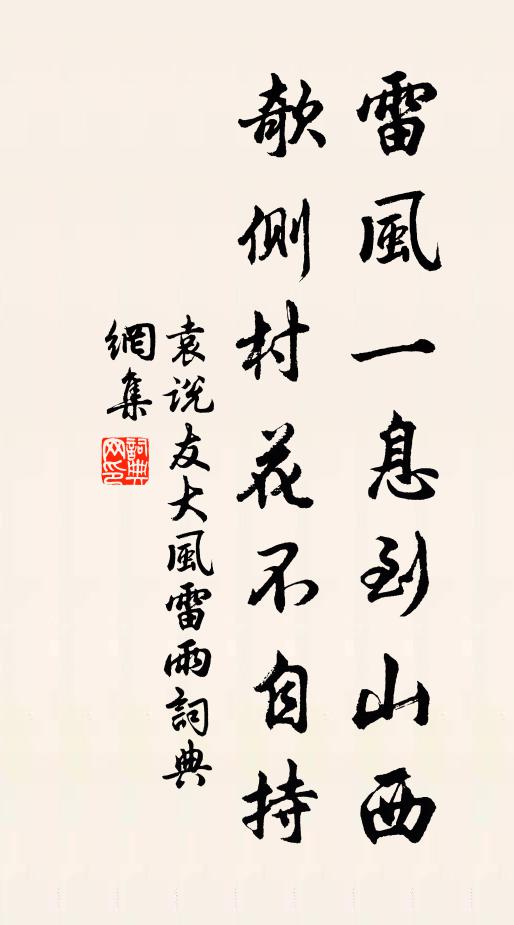 雷風一息到山西
欹側村花不自持
袁說友大風雷雨詞典
網集
詞典网印